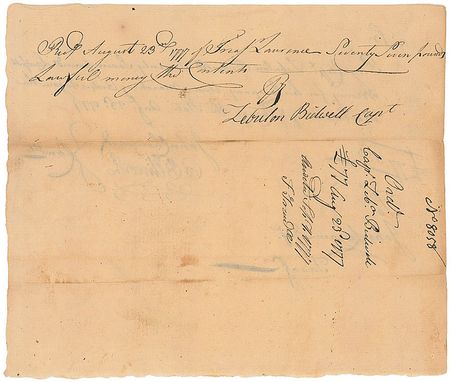 Recd August 23d 1777 of Treasr Lawrence Seventy Seven pounds
Lawful money the Contents
Zebulon Bidwell Capt
Ordr
Capt Zebn Bidwell
£77 Augt 23d 1777
Sept 1777
No 8058